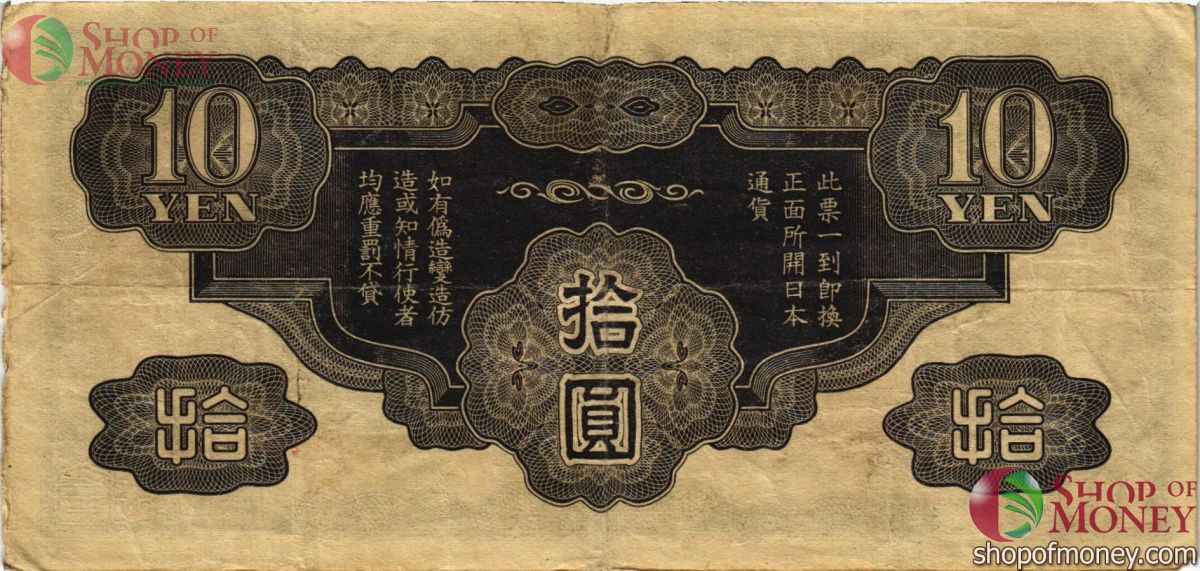 SHOP OF
MONEY
10
YEN
10
YEN
此票一到即換
正面所開日本
通貨
如有偽造變造仿
造或知情行使者
均應重罰不貸
拾圓
拾
拾
SHOP OF
MONEY
shopofmoney.com